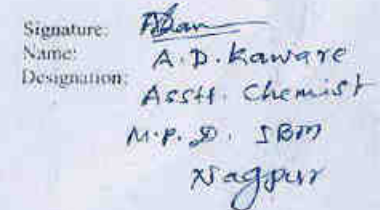 Signature:
Name: A.D. Kaware
Designation: Asstt. Chemist
M.P.D. IBM
Nagpur